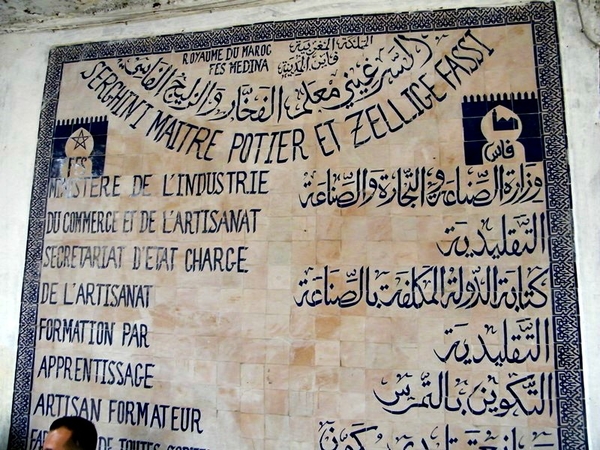 ROYAUME DU MAROC المملكة المغربية
FES MEDINA فاس المدينة
السرغيني معلم الفخار والزليج الفاسي
SERGHINI MAITRE POTIER ET ZELLIGE FASSI
FES
فاس
MINISTERE DE L'INDUSTRIE وزارة الصناعة والتجارة والصناعة
DU COMMERCE ET DE L'ARTISANAT التقليدية
SECRETARIAT D'ETAT CHARGE كتابة الدولة المكلفة بالصناعة
DE L'ARTISANAT التقليدية
FORMATION PAR التكوين بالتمرس
APPRENTISSAGE
ARTISAN FORMATEUR
DE TOUTES